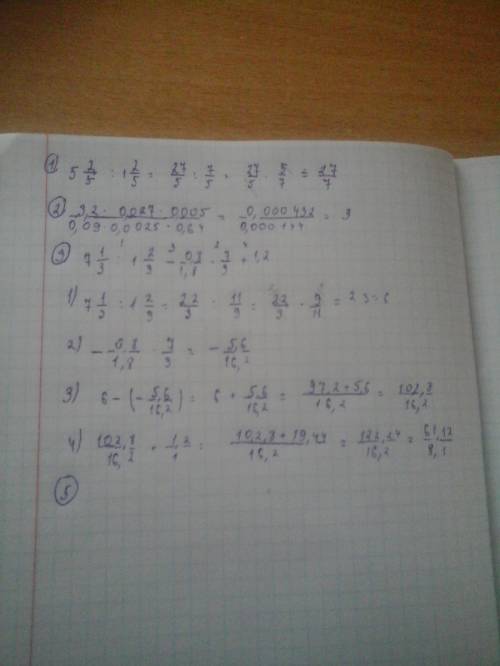 ① 5 2/5 : 1 2/5 = 27/5 : 7/5 = 27/5 · 5/7 = 27/7
② 3,2 · 0,027 · 0,005 / 0,09 · 0,0025 · 0,64 = 0,000432 / 0,000144 = 3
③ 7 1/3 : 1 2/9 - 0,8/1,8 · 7/9 + 1,2
1) 7 1/3 : 1 2/9 = 22/3 : 11/9 = 22/3 · 9/11 = 2·3 = 6
2) - 0,8/1,8 · 7/9 = - 5,6/16,2
3) 6 - (- 5,6/16,2) = 6 + 5,6/16,2 = 97,2+5,6 / 16,2 = 102,8/16,2
4) 102,8/16,2 + 1,2/1 = 102,8+19,44 / 16,2 = 122,24/16,2 = 61,12/8,1
⑤